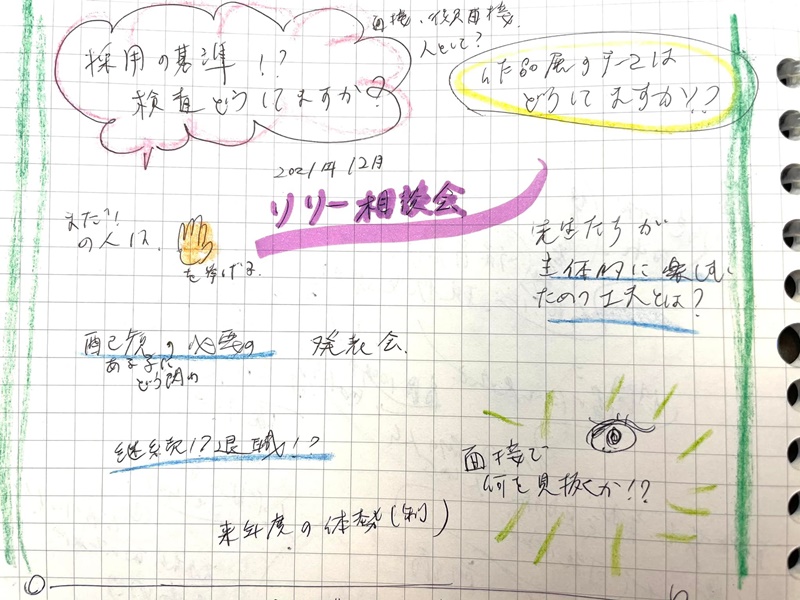 面接、役員面接
人として?
採用の基準!?
検査どうしてますか?
作品展のテーマは
どうしてますか!?
2021年12月
リリー相談会
まだ?!
の人は、
を挙げる。
先生たちが
主体的に楽しむ
ための工夫とは?
配慮の必要の
ある子に
どう関わ
発表会
継続!?退職!?
面接で
何を見抜くか!?
来年度の体勢(制)